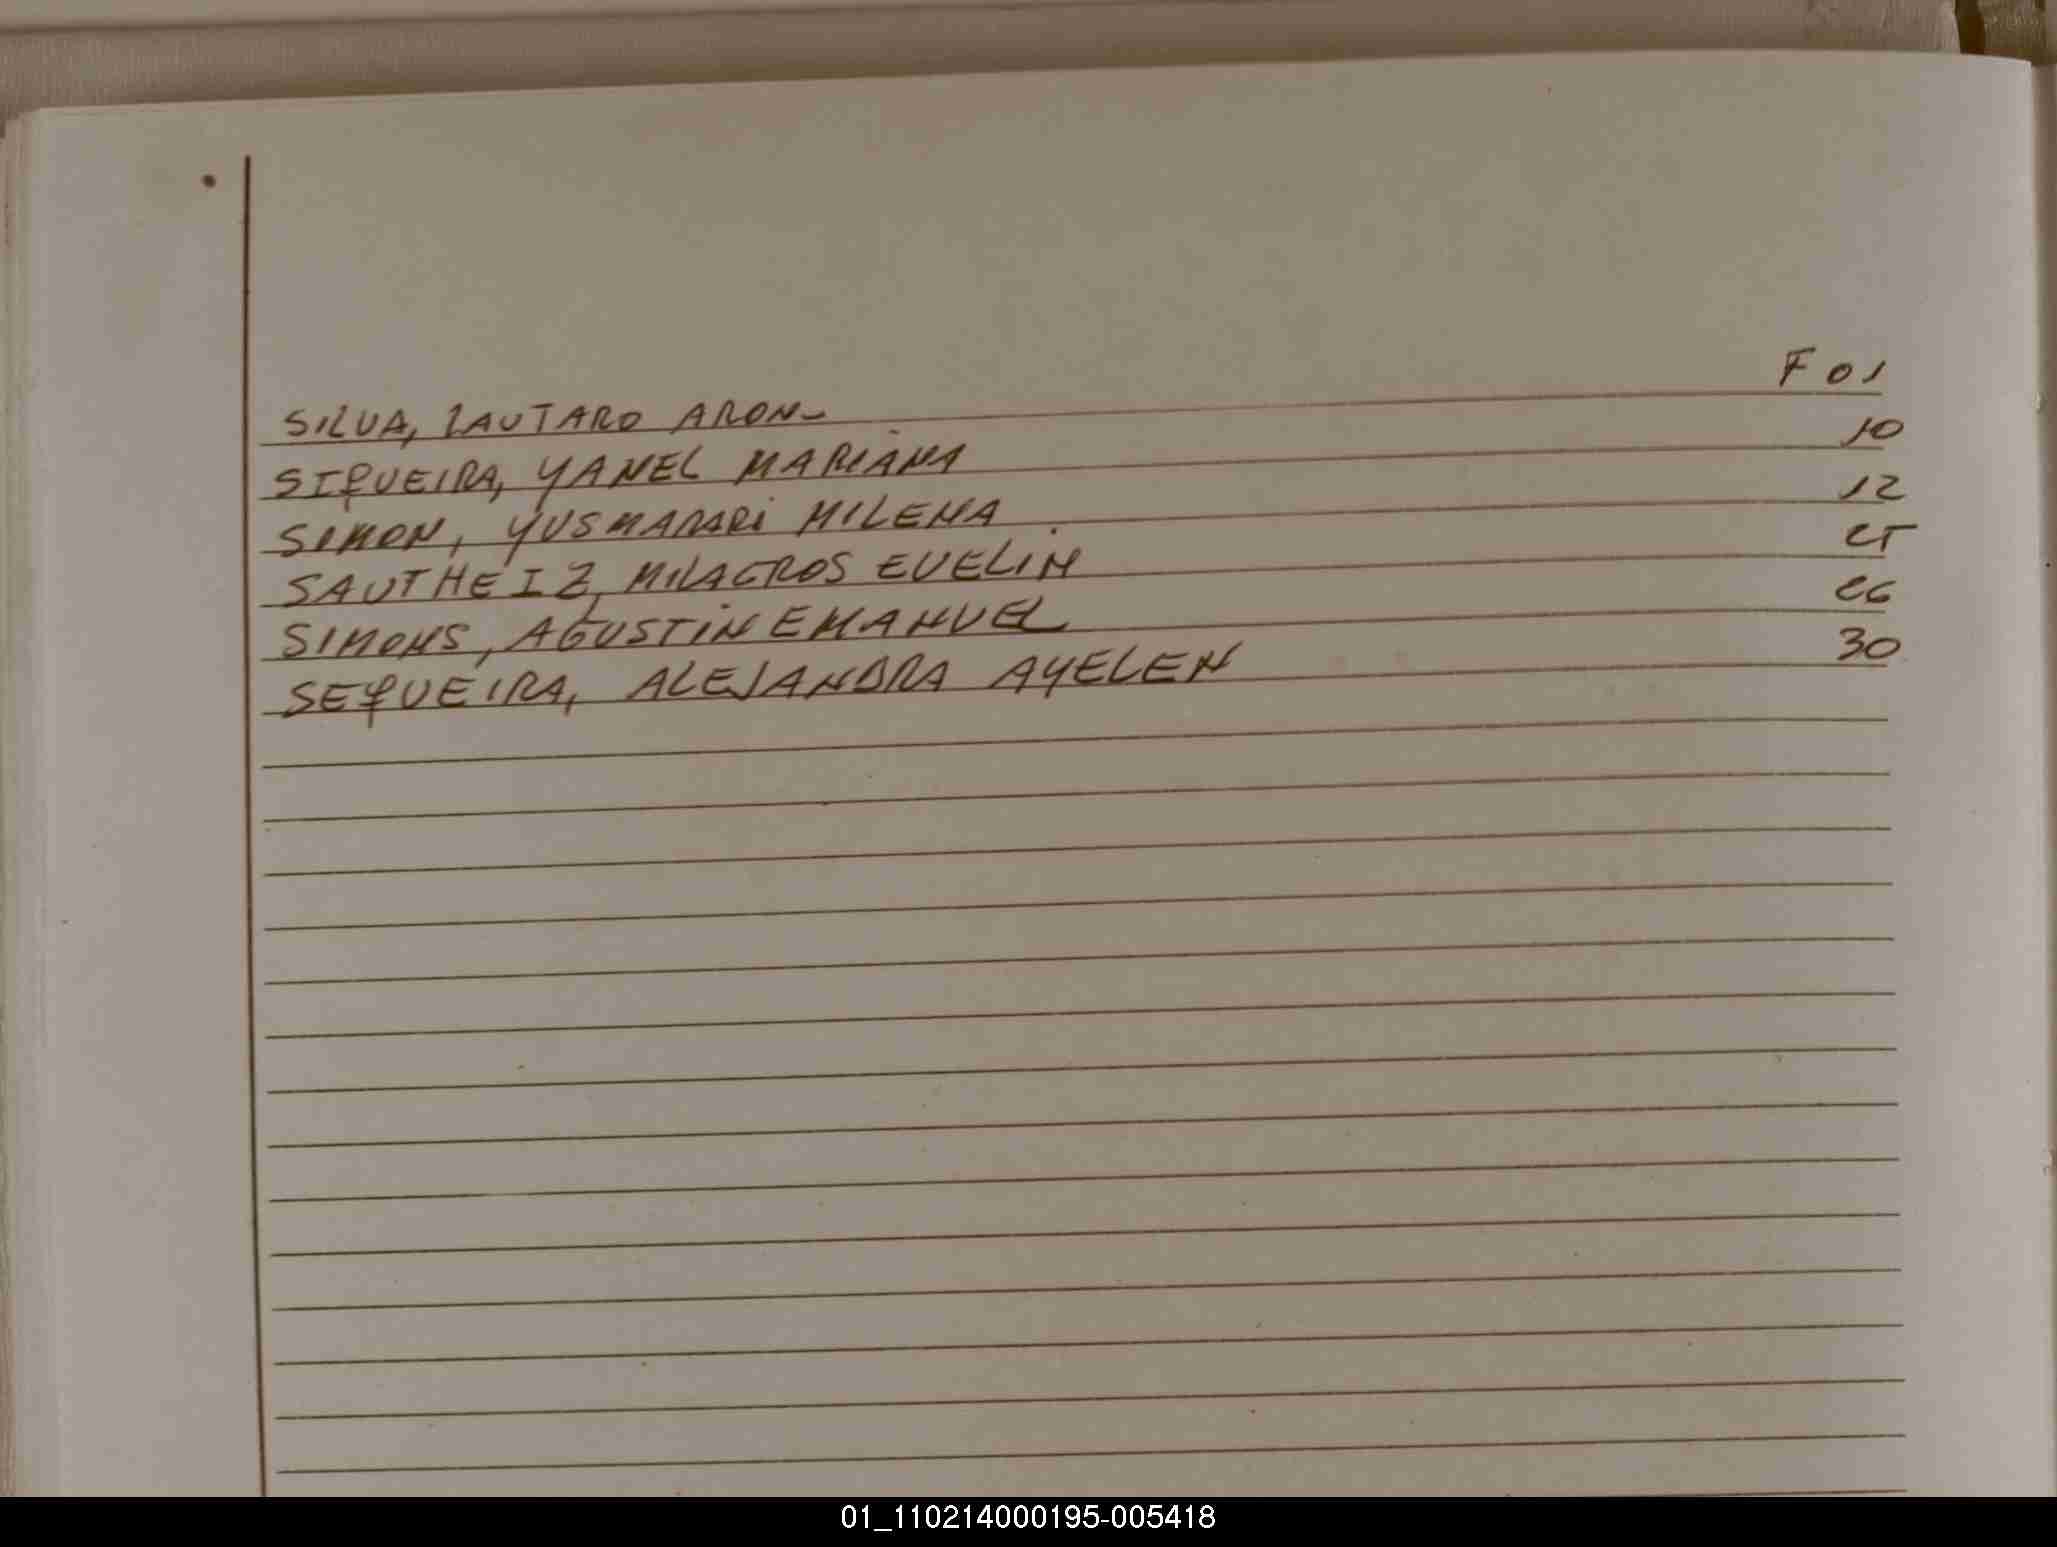 SILVA, LAUTARO ARON- F 01
SIQUEIRA, YANEL MARIANA 10
SIMON, YUSMARARI MILENA 12
SAUTHEIZ, MILAGROS EVELIN 25
SIMONS, AGUSTIN EMANUEL 26
SEQUEIRA, ALEJANDRA AYELEN 30
01_110214000195-005418